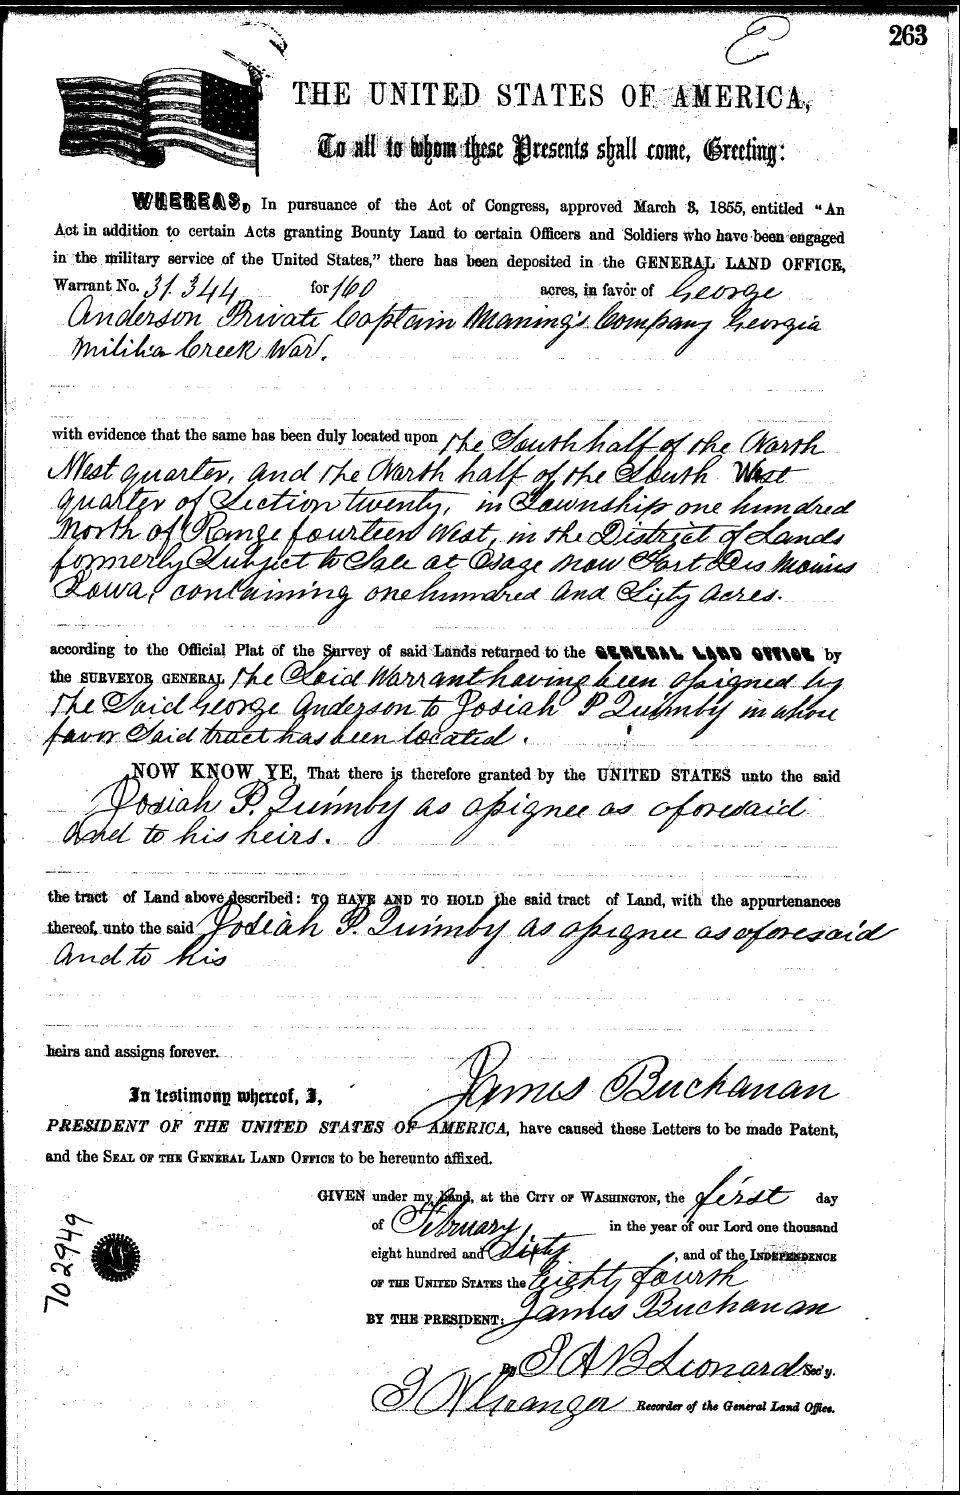 E
263
THE UNITED STATES OF AMERICA,
To all to whom these Presents shall come, Greeting:
WHEREAS, In pursuance of the Act of Congress, approved March 3, 1855, entitled "An
Act in addition to certain Acts granting Bounty Land to certain Officers and Soldiers who have been engaged
in the military service of the United States," there has been deposited in the GENERAL LAND OFFICE,
Warrant No. 31.344 for 160 acres, in favor of George
Anderson Private Captain Maning's Company Georgia
Militia Creek War.
with evidence that the same has been duly located upon the South half of the North
West quarter, and the North half of the South West
quarter of Section twenty, in Township one hundred
North of Range fourteen West, in the District of Lands
formerly Subject to Sale at Osage now Fort Des Moines
Iowa, containing one hundred and Sixty acres.
according to the Official Plat of the Survey of said Lands returned to the GENERAL LAND OFFICE by
the SURVEYOR GENERAL the Said Warrant having been assigned by
the Said George Anderson to Josiah P Quimby in whose
favor Said tract has been located.
NOW KNOW YE, That there is therefore granted by the UNITED STATES unto the said
Josiah P. Quimby as assignee as aforesaid
and to his heirs.
the tract of Land above described: TO HAVE AND TO HOLD the said tract of Land, with the appurtenances
thereof, unto the said Josiah P. Quimby as assignee as aforesaid
and to his
heirs and assigns forever.
In testimony whereof, I, James Buchanan
PRESIDENT OF THE UNITED STATES OF AMERICA, have caused these Letters to be made Patent,
and the SEAL OF THE GENERAL LAND OFFICE to be hereunto affixed.
GIVEN under my hand, at the CITY OF WASHINGTON, the first day
of February in the year of our Lord one thousand
eight hundred and Sixty, and of the INDEPENDENCE
OF THE UNITED STATES the Eighty fourth
BY THE PRESIDENT: James Buchanan
By J A B Leonard Sec'y.
J N Granger Recorder of the General Land Office.
702949